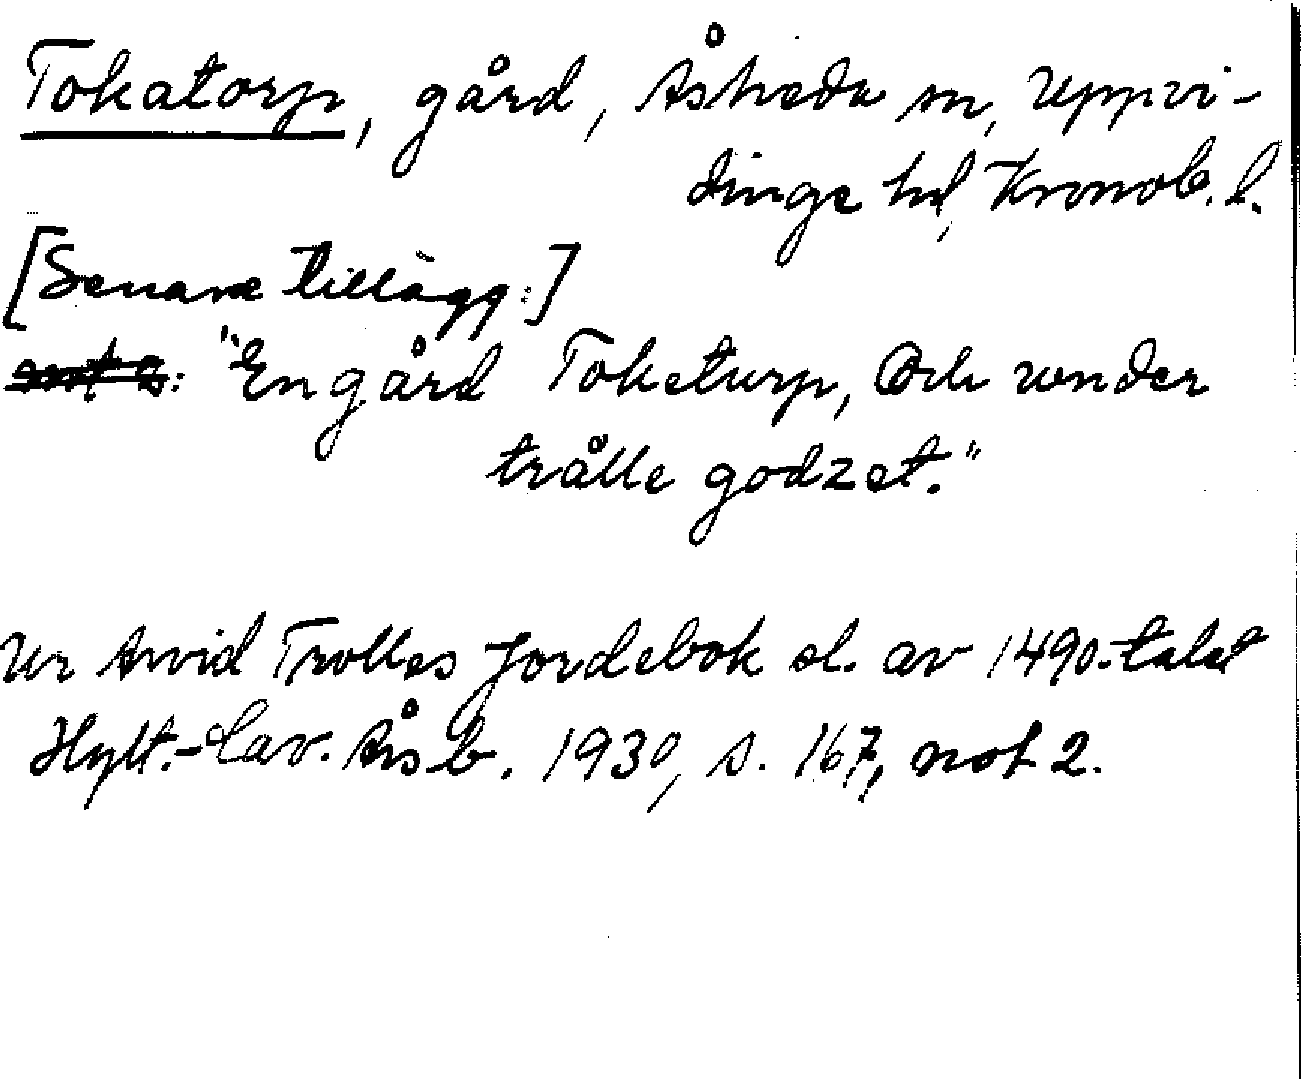 Tokatorp, gård, Åsheda sn, Uppvi-
dinge hd, Kronob. l.
[Senare tillägg:]
"En gård Toketurp, Och vnder
trålle godzet."
Ur Arvid Trolles Jordebok sl. av 1490-talet
Hylt.-Cav. Åsb. 1930, s. 167, not 2.